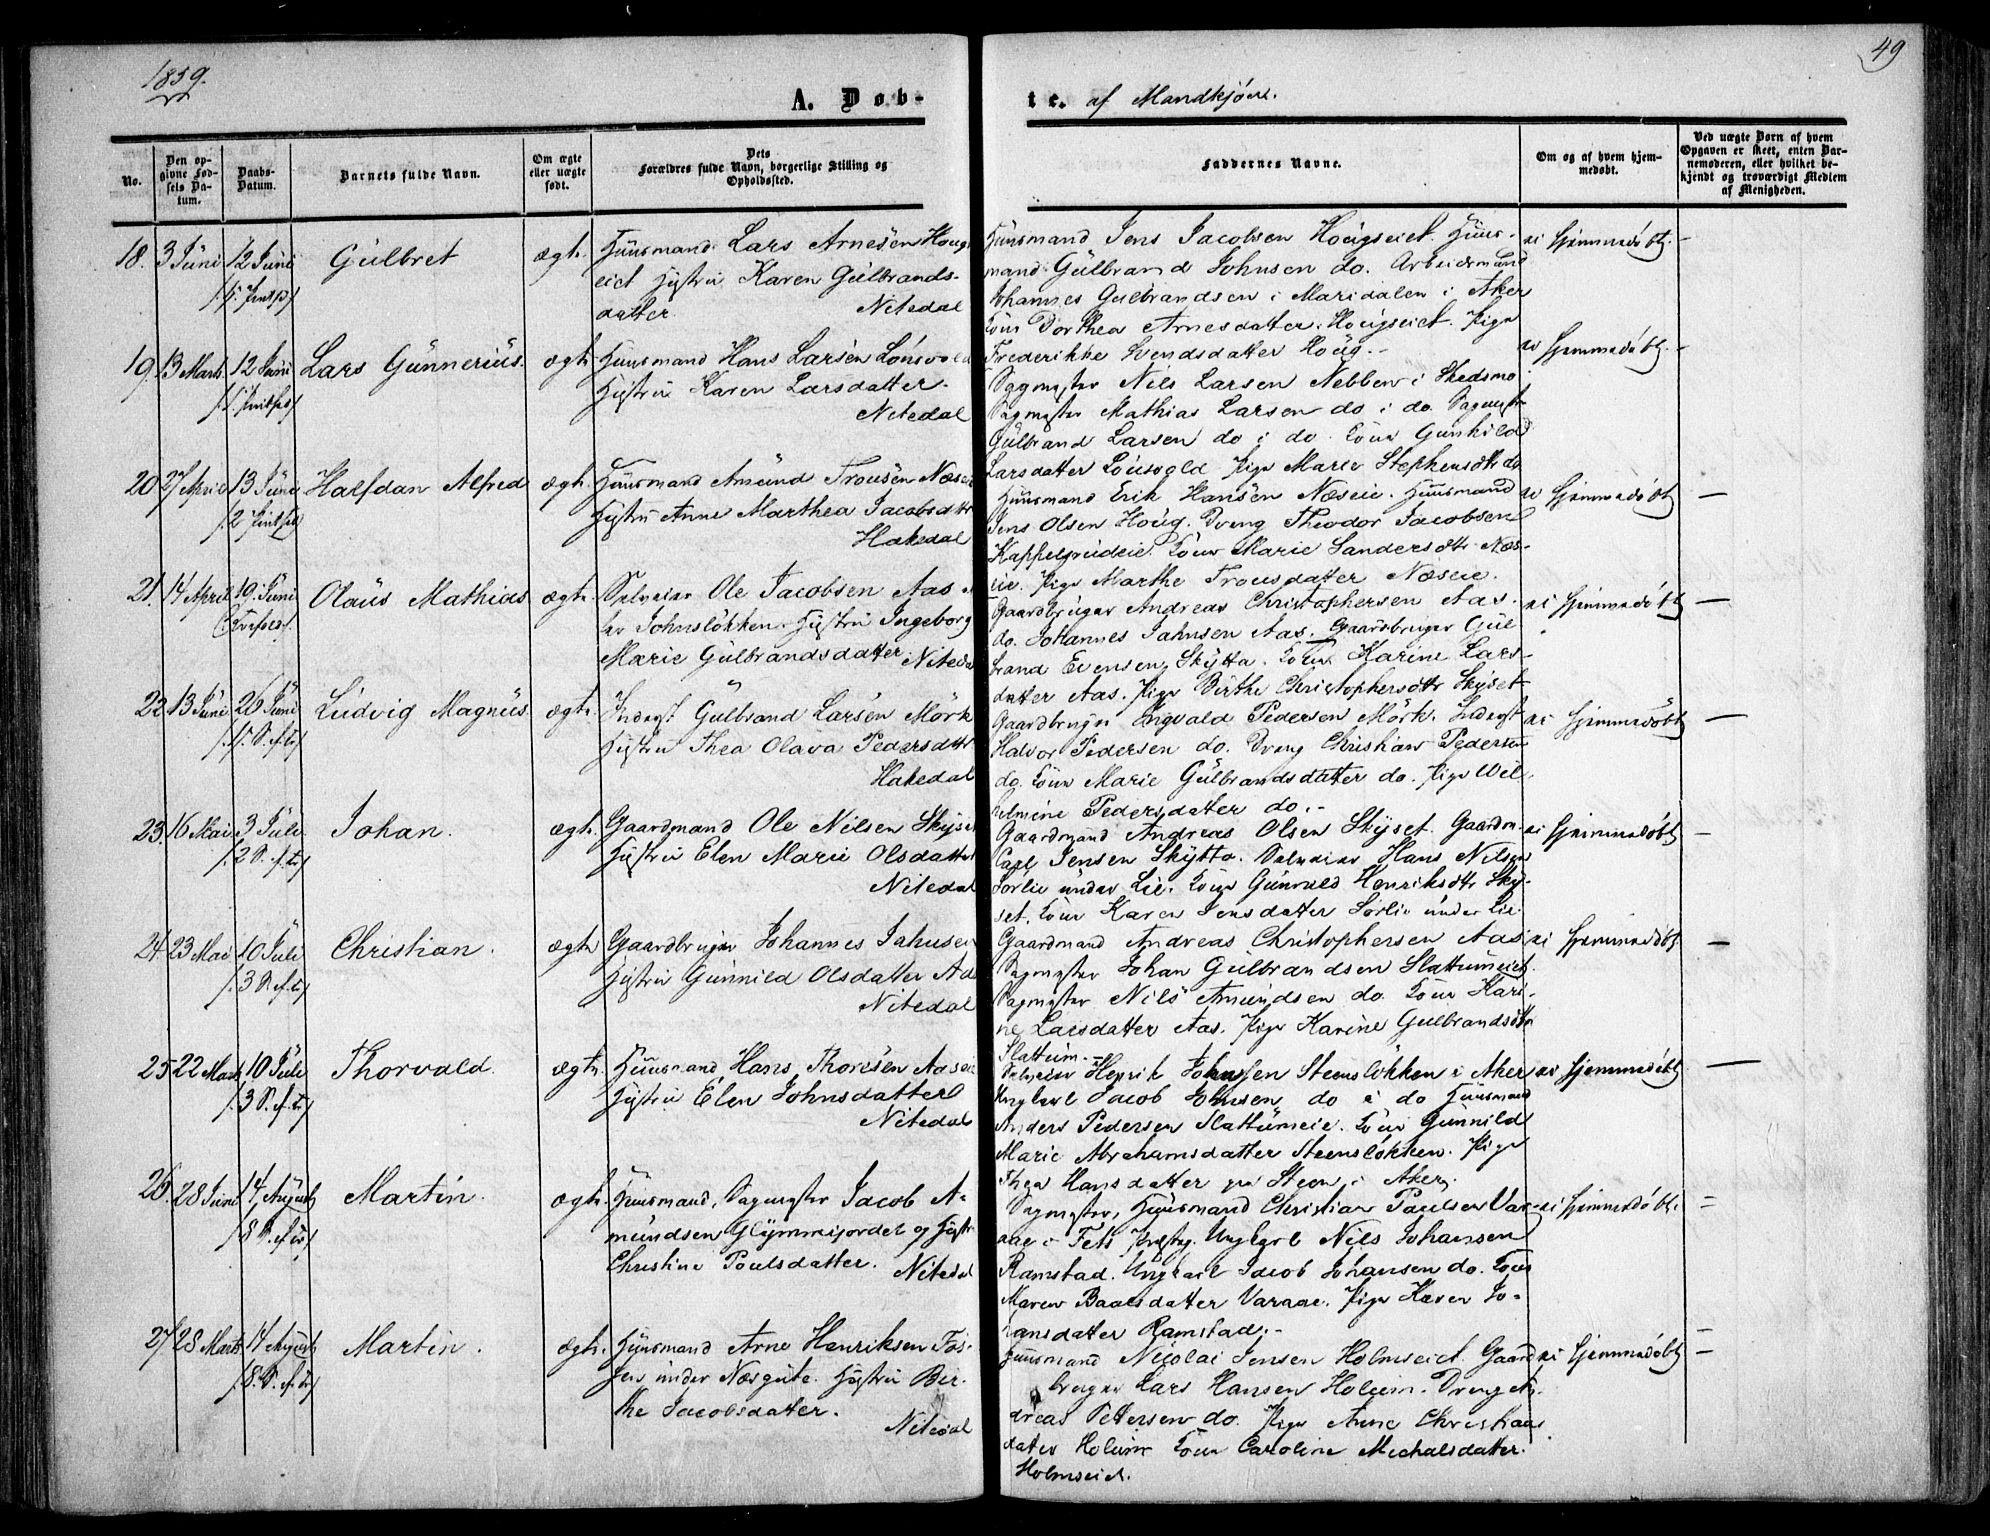 1859.
49
A. Døb-
te. af Mandkjön.
No.
Den op-
givne Fød-
sels Da-
tum.
Daabs-
Datum.
Barnets fulde Navn.
Om ægte
eller uægte
født.
Dets
Forældres fulde Navn, borgerlige Stilling og
Opholdssted.
Faddernes Navne.
Om og af hvem hjem-
medøbt.
Ved uægte Børn af hvem
Opgaven er skeet, enten Bar-
nemoderen, eller hvilket be-
kjendt og troværdigt Medlem
af Menigheden.
18. 3 Juni 12 Juni Gulbret ægte Huusmand Lars Arnesen Houg-
eiet Hustru Karen Gulbrands-
datter Nitedal
Huusmand Jens Jacobsen Hougseiet. Huus-
mand Gulbrand Johnsen do. Arbeidsmand
Johannes Gulbrandsen i Maridalen i Aker
Kone Dorthea Arnesdatter Hougseiet. Pige
Frederikke Svendsdatter Houg.-
ei hjemmedøbt. -
19. 13 Marts 12 Juni Lars Gunnerius. ægte Huusmand Hans Larsen
Hustru Karen Larsdatter.
Nitedal
Sagmester Nils Larsen Nebben i Skedsmo
Sagmester Mathias Larsen do i do. Sagmester
Gulbrand Larsen do i do. Kone Gunhild
Larsdatter Pige Marie Stephensdttr do
ei hjemmedøbt. -
20 27 April 13 Juni Halfdan Alfred ægte Huusmand Amund Tronsen Næseie
Hustru Anne Marthea Jacobsdttr
Hakedal
Huusmand Erik Hansen Næseie. Huusmand
Jens Olsen Houg. Dreng Theodor Jacobsen
Kone Marie Sandersdttr Næs-
eie. Pige Marthe Tronsdatter Næseie.
ei hjemmedøbt —
21. 14 April 19 Juni Olaus Mathias ægte Selveier Ole Jacobsen Aas
Johnsløkken Hustru Ingeborg
Marie Gulbrandsdatter. Nitedal
Gaardbruger Andreas Christophersen Aas.
do. Johannes Jahnsen Aas. Gaardbruger Gul-
brand Evensen Skytta. Kone Karine Lars-
datter Aas. Pige Birthe Christophersdttr Skyset
ei hjemmedøbt —
22 13 Juni 26 Juni Ludvig Magnus ægte Inderst Gulbrand Larsen Mørk
Hustru Thea Olava Pedersdttr
Hakedal
Gaardbruger Ingvald Pedersen Mørk. Inderst
Halvor Pedersen do. Dreng Christian Pedersen
do. Kone Marie Gulbrandsdatter do. Pige Wil-
helmine Pedersdatter do.-
ei hjemmedøbt —
23. 16 Mai 3 Juli Johan. ægte Gaardmand Ole Nilsen Skyset
Hustru Elen Marie Olsdatter
Nitedal
Gaardmand Andreas Olsen Skyset. Gaardm.
Carl Jensen Skytta. Selveier Hans Nilsen
Sørlie under Lie. Kone Gunvald Henriksdttr Sky-
set. Kone Karen Jensdatter Sørlie under Lie.
ei hjemmedøbt —
24. 23 Mai 10 Juli Christian. ægte Gaardbruger Johannes Jahnsen
Hustru Gunnild Olsdatter Aas
Nitedal
Gaardmand Andreas Christophersen Aas
Sagmester Johan Gulbrandsen Slattumeiet.
Sagmester Nils Amundsen do. Kone Kari-
ne Larsdatter Aas. Pige Karine Gulbrandsdttr
Slattum.-
ei hjemmedøbt —
25 22 Marts 10 Juli Thorvald. ægte. Huusmand Hans Thoresen Aaseie
Hustru Elen Johnsdatter
Nitedal
Selveier Henrik Johnsen Steensløkken i Aker
Ungkarl Jacob Johnsen do i do Huusmand
Anders Pedersen Slattumeie. Kone Gunnild
Marie Abrahamsdatter Steensløkken. Pige
Thea Hansdatter paa Steen i Aker.
ei hjemmedøbt —
26. 28 Juni 14 August Martin. ægte. Huusmand, Sagmester Jacob A-
mundsen Glymmejordet og Hustru
Christine Poulsdatter. Nitedal
Sagmester, Huusmand Christian Paulsen Var-
aae i Fets Præstg. Ungkarl Nils Johansen
Ramstad. Ungkarl Jacob Johansen do. Kone
Maren Baalsdatter Varaae. Pige Karen Jo-
hansdatter Ramstad.-
ei hjemmedøbt. =
27 28 Marts 14 August Martin. ægte. Huusmand Arne Henriksen Fos-
sen under Hustru Bir-
the Jacobsdatter.
Nitedal
Huusmand Nicolai Jensen Holmseiet. Gaard-
bruger Lars Hansen Holum. Dreng An-
dreas Pettersen do. Pige Anne Christians-
datter Holum Kone Caroline Michalsdatter
Holmseiet.
ei hjemmedøbt —